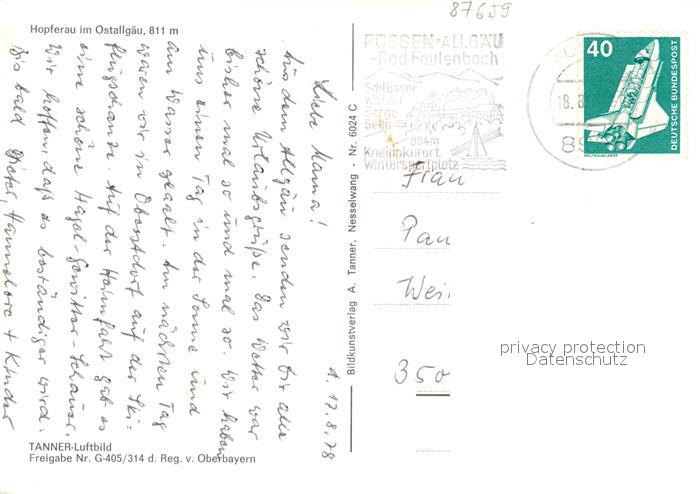 87659
Hopferau im Ostallgäu, 811 m
FÜSSEN · ALLGÄU
-Bad Faulenbach
Schlösser
Berge
Seen
804m
Kneippkurort
Wintersportplatz
18. 8.
89
40
DEUTSCHE BUNDESPOST
WELTRAUMLABOR
d. 17.8.78
Liebe Mama!
Aus dem Allgäu senden wir Dir alle
schöne Urlaubsgrüße. Das Wetter war
bisher mal so und mal so. Wir haben
uns einen Tag in der Sonne und
am Wasser geaalt. Am nächsten Tag
waren wir in Oberstdorf auf der Ski-
flugschanze. Auf der Heimfahrt gab es
eine schöne Hagel-Gewitter-Schauer.
Wir hoffen, daß es beständiger wird.
Bis bald Dieter, Hannelore + Kinder
Bildkunstverlag A. Tanner, Nesselwang - Nr. 6024 C
Frau
Pau
Wei
350
privacy protection
Datenschutz
TANNER-Luftbild
Freigabe Nr. G-405/314 d. Reg. v. Oberbayern